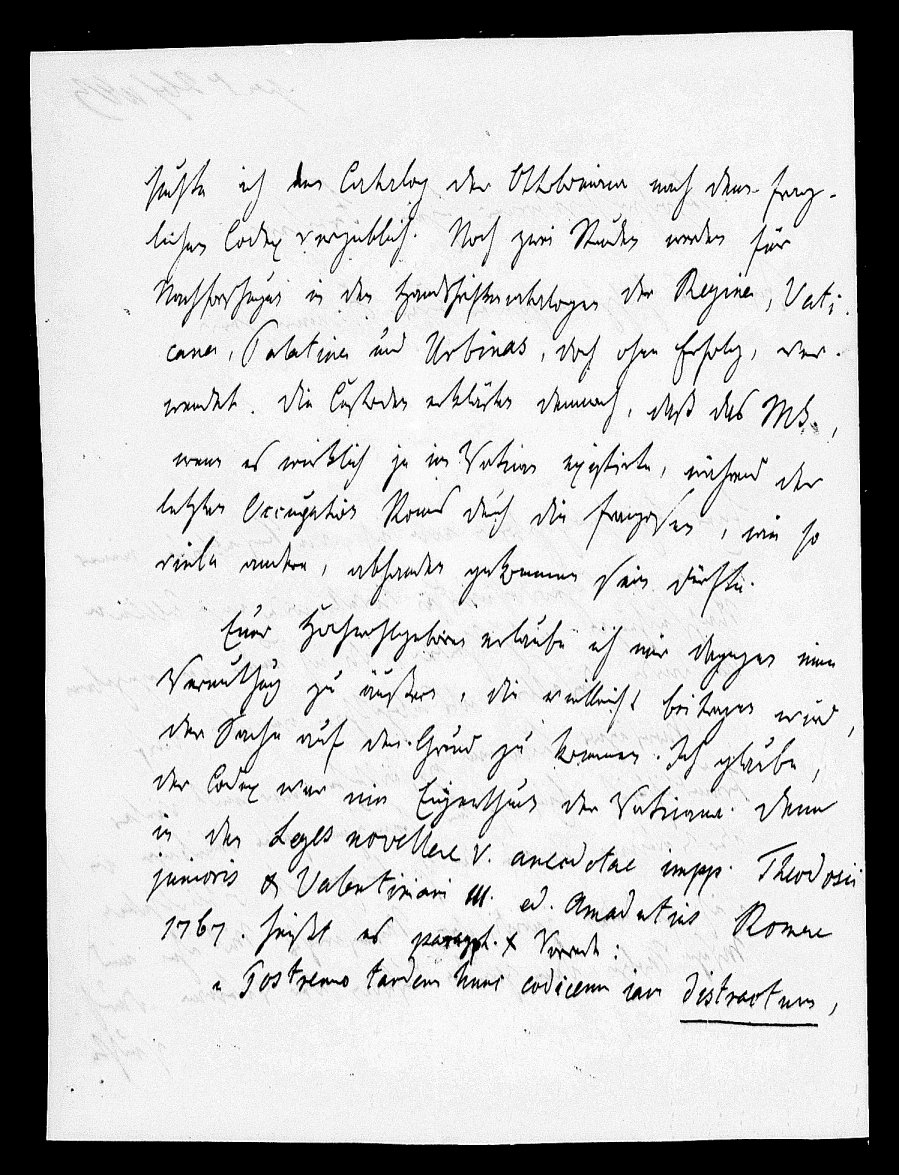 suchte ich den Catalog der Ottoboniana nach dem frag-
lichen Codex vergeblich. Noch zwei Stunden werden für
Nachforschungen in den Handschriftencatalogen der Regina, Vati-
cana, Palatina und Urbinas, doch ohne Erfolg, ver-
wendet. Die Custoden erklärten demnach, daß das MS.,
wenn es wirklich je im Vatican existirte, während der
letzten Occupation Roms durch die Franzosen, wie so
viele andere, abhanden gekommen sein dürfte.
Euer Hochwohlgeboren erlaube ich mir dagegen eine
Vermuthung zu äußern, die vielleicht beitragen wird,
der Sache auf den Grund zu kommen. Ich glaube,
der Codex war nie Eigenthum der Vaticana. Denn
in den Leges novellae V. anecdotae impp. Theodosii
junioris & Valentiniani III. ed. Amadutius Romae
1767. heißt es paragph. X Vorrede:
„Postremo tandem hunc codicem iam distractum,